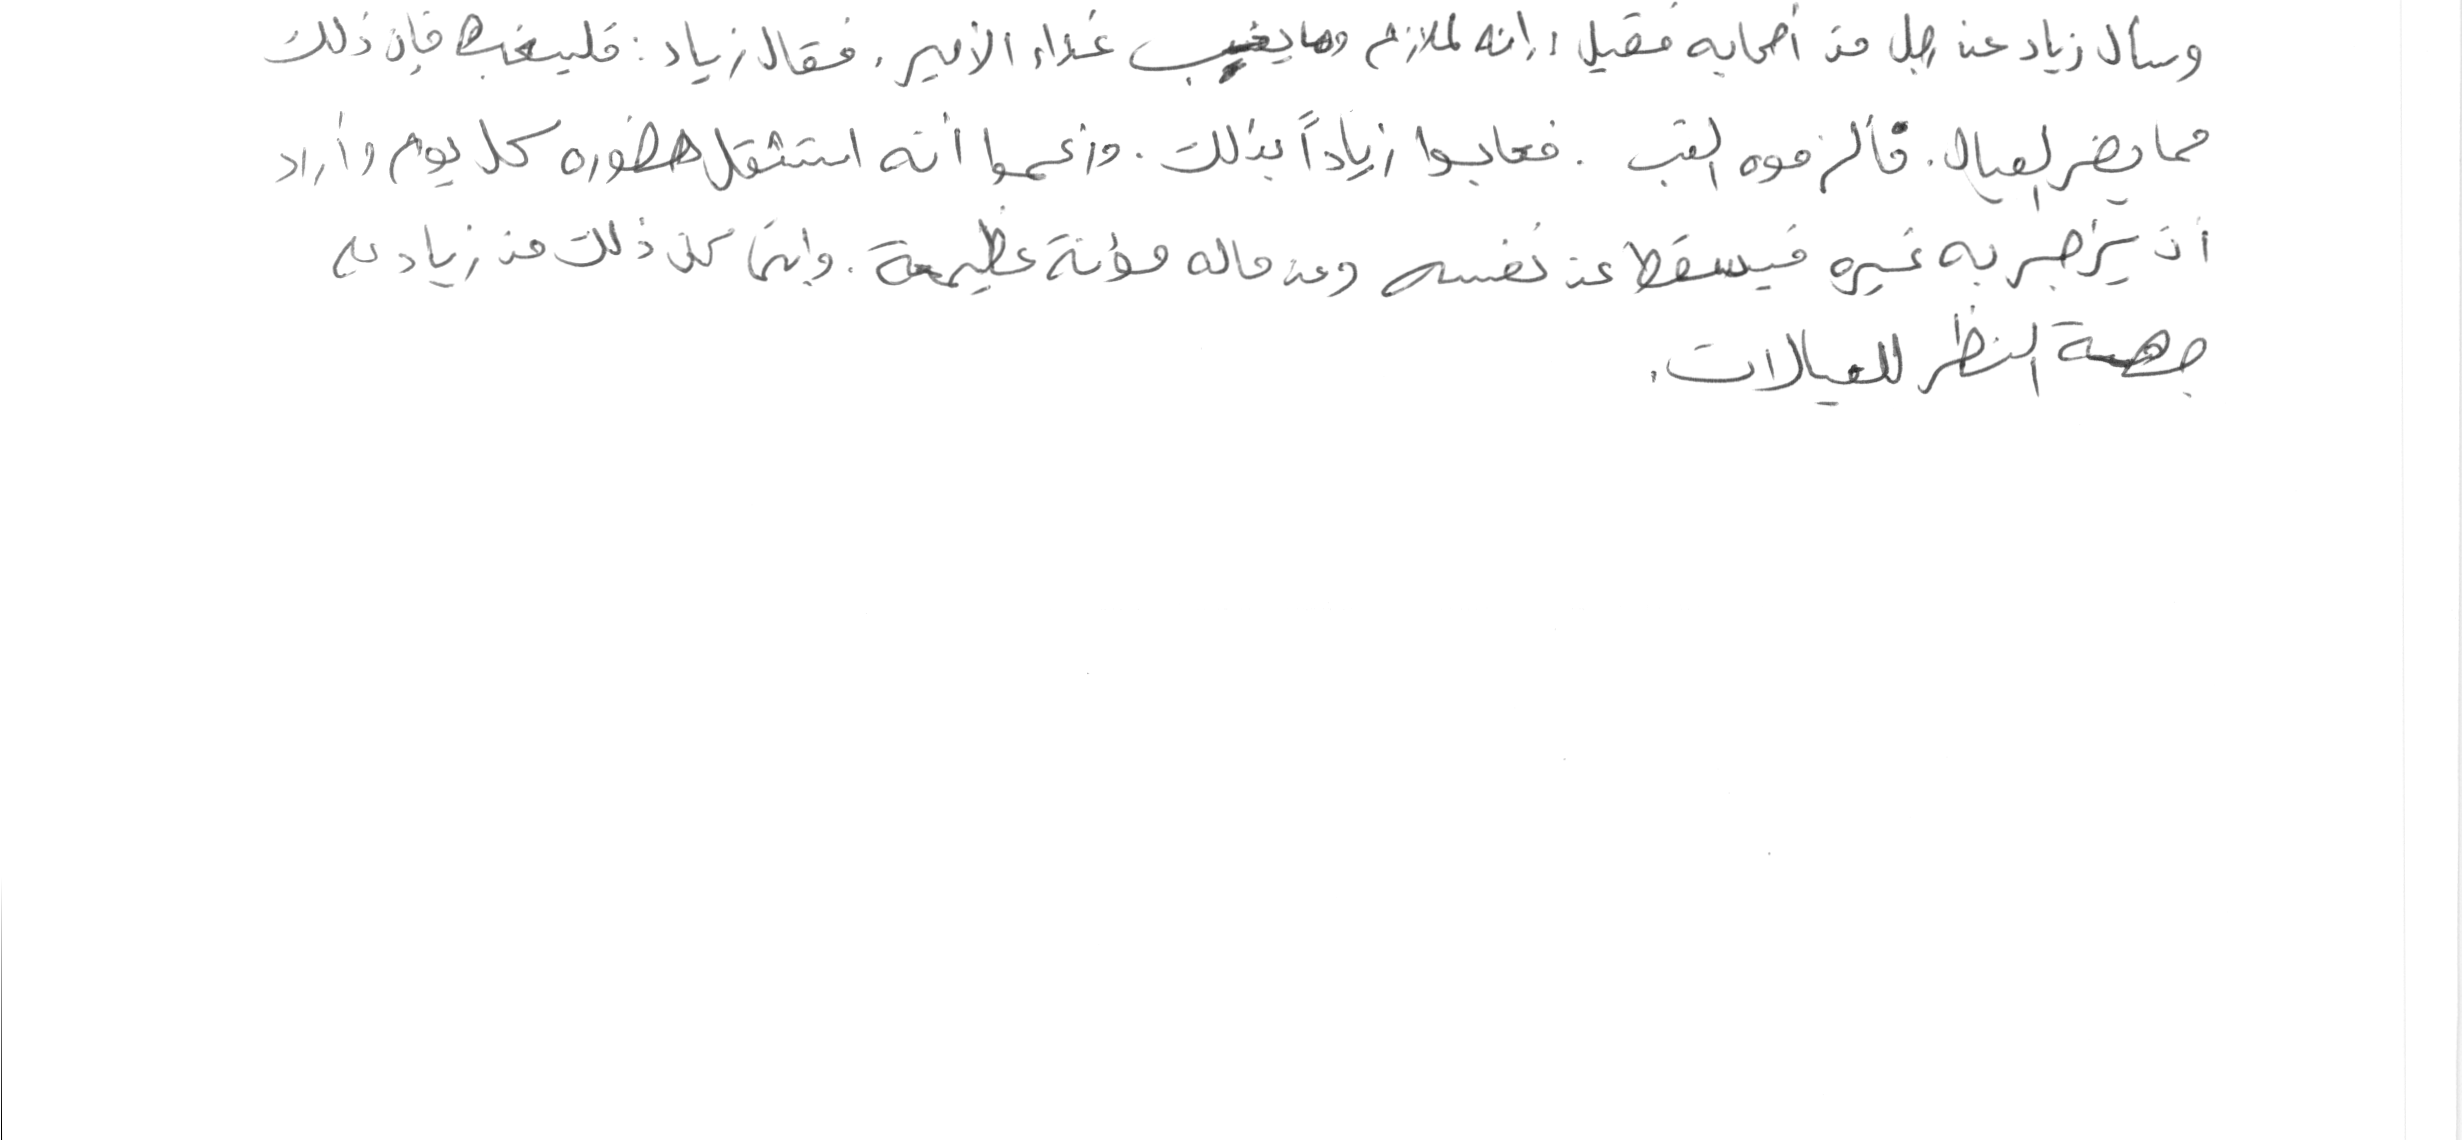 وسأل زياد عن رجل من أصحابه فقيل، إنه لملازم وما يغيب غداء الأمير، فقال زياد: فليغب فإن ذلك
مما يضر العيال. فألزموه الغب. فعابوا زياداً بذلك. وزعموا أنه استثقل حضوره كل يوم وأراد
أن يزجر به غيره فيسقط عن نفسه وعن ماله مؤنة عظيمة. وإنما كان ذلك من زياد على
جهة النظر للعيالات.